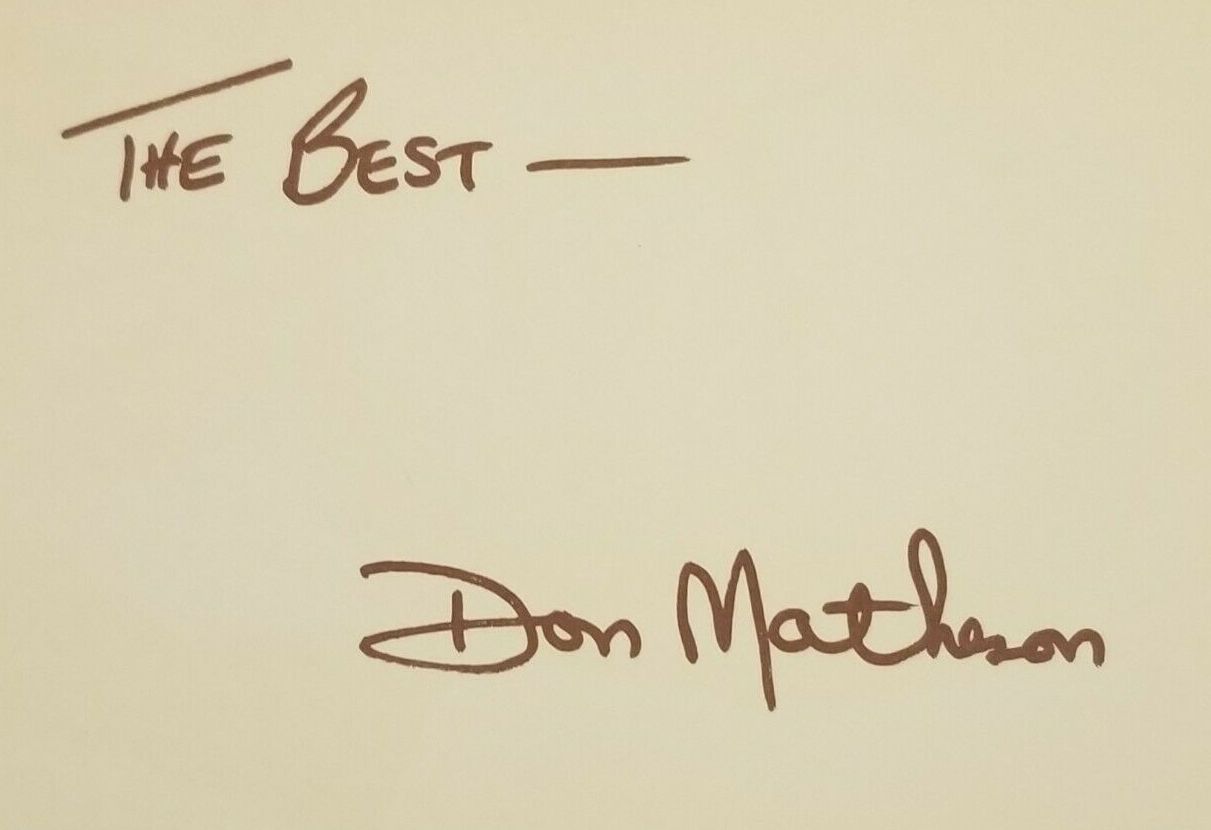 THE BEST —
Don Matheson